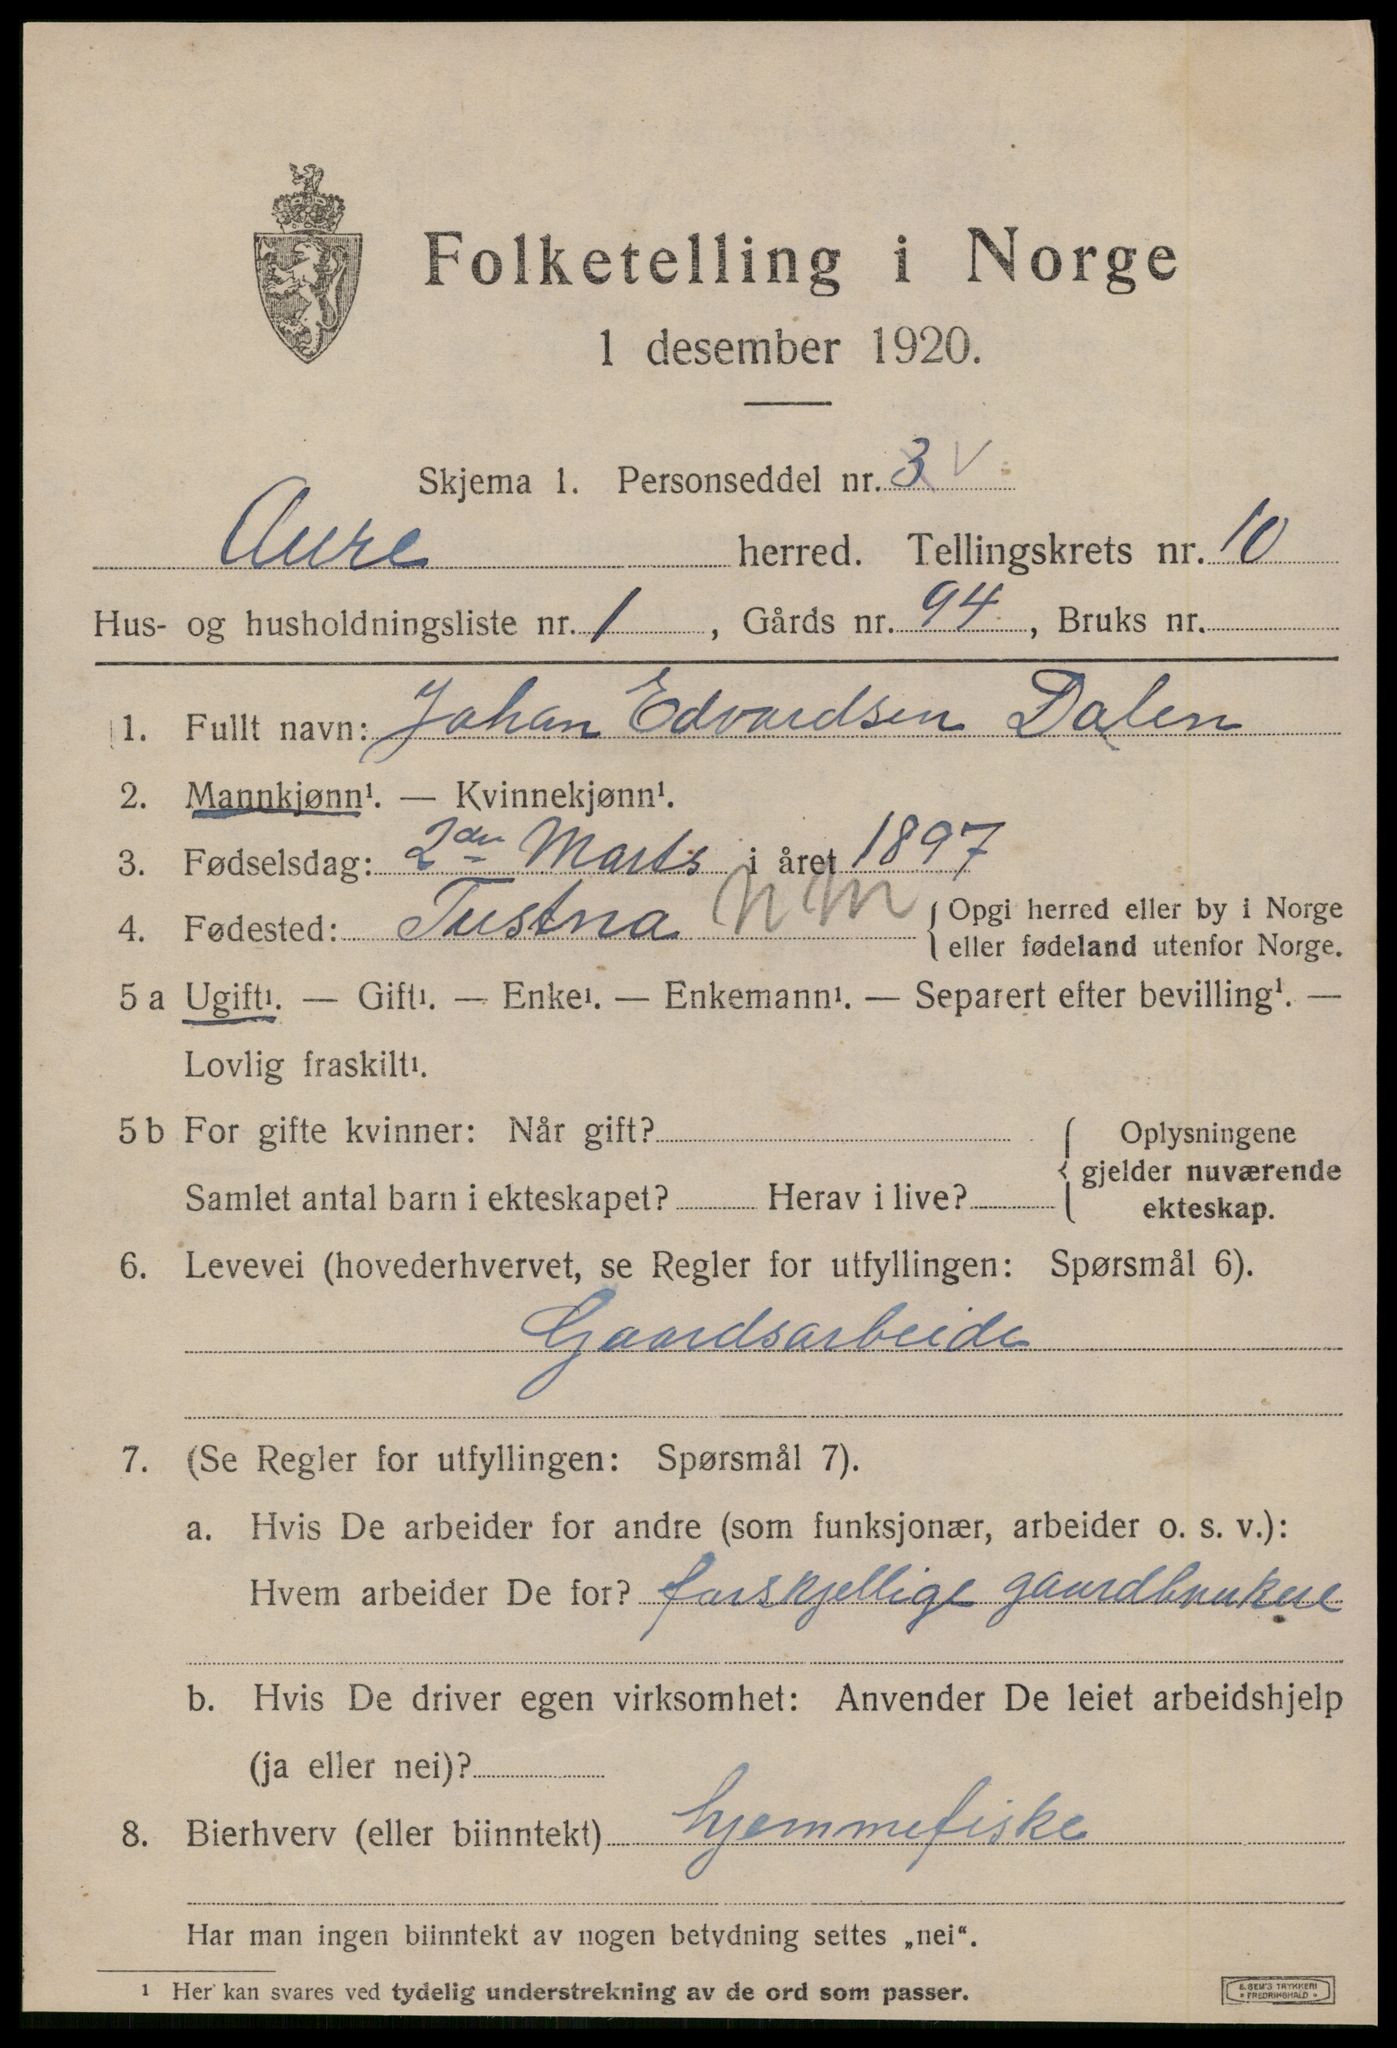 Folketelling i Norge
1 desember 1920.
Skjema 1. Personseddel nr. 3 V
Aure herred. Tellingskrets nr. 10
Hus- og husholdningsliste nr. 1, Gårds nr. 94, Bruks nr.
1. Fullt navn: Johan Edvardsen Dalen
2. Mannkjønn¹. — Kvinnekjønn¹.
3. Fødselsdag: 2den Marts i året 1897
4. Fødested: Tustna N M { Opgi herred eller by i Norge
eller fødeland utenfor Norge.
5 a Ugift¹. — Gift¹. — Enke¹. — Enkemann¹. — Separert efter bevilling¹. —
Lovlig fraskilt¹.
5 b For gifte kvinner: Når gift? { Oplysningene
gjelder nuværende
Samlet antal barn i ekteskapet? Herav i live? ekteskap.
6. Levevei (hovederhvervet, se Regler for utfyllingen: Spørsmål 6).
Gaardsarbeide
7. (Se Regler for utfyllingen: Spørsmål 7).
a. Hvis De arbeider for andre (som funksjonær, arbeider o. s. v.):
Hvem arbeider De for? forskjellige gaardbrukere
b. Hvis De driver egen virksomhet: Anvender De leiet arbeidshjelp
(ja eller nei)?
8. Bierhverv (eller biinntekt) hjemmefiske
Har man ingen biinntekt av nogen betydning settes „nei“.
¹ Her kan svares ved tydelig understrekning av de ord som passer.
E. SEM'S TRYKKERI
FREDRIKSHALD